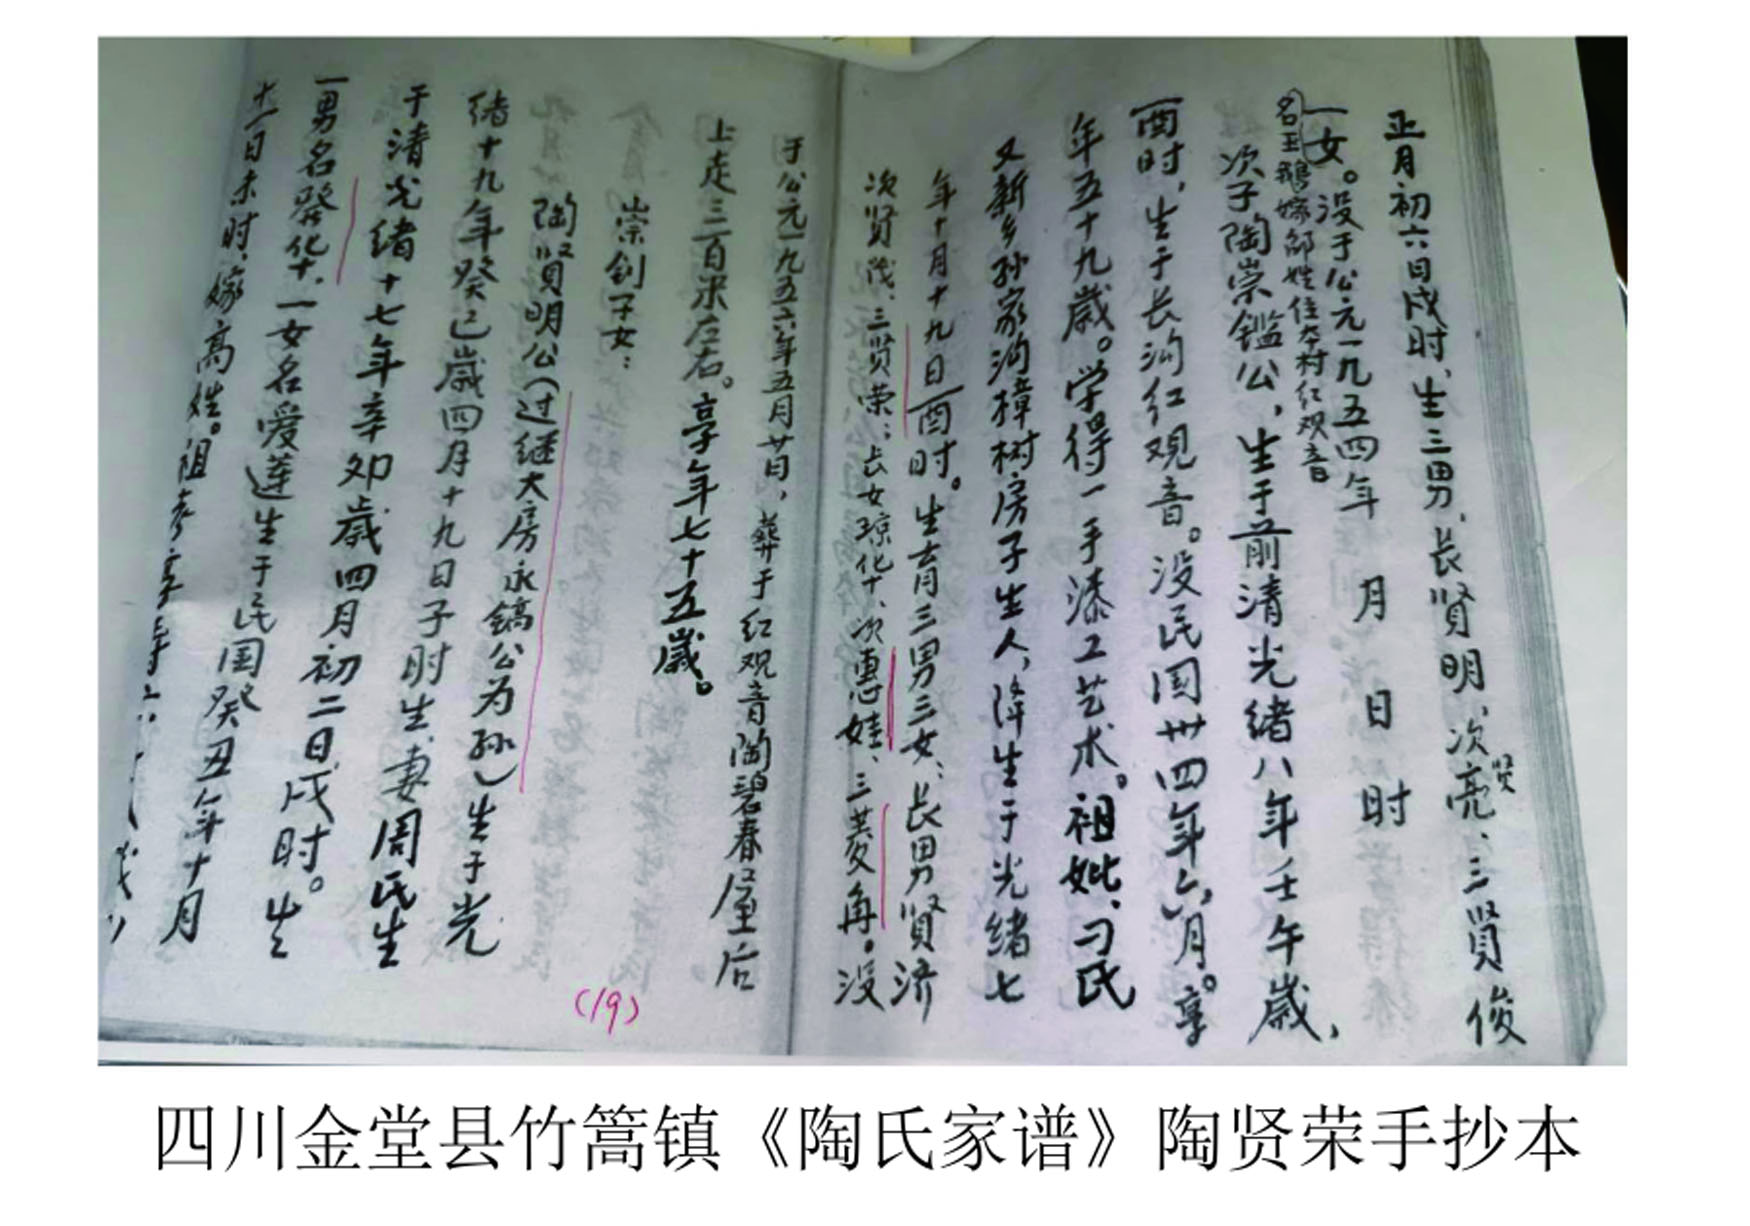 正月初六日戌时,生三男、长贤明、次贤亮、三贤俊
一女。没于公元一九五四年 月 日 时
名玉鹅嫁邹姓住本村红观音
次子陶崇鑑公,生于前清光绪八年壬午歲,
酉时,生于长沟红观音。没民国卅四年六月。享
年五十九歲。学得一手漆工艺术。祖妣、刁氏
又新乡孙家沟樟树房子生人,降生于光绪七
年十月十九日酉时。生育三男三女;长男贤济
次贤茂、三贤荣;长女琼化、次惠娃、三菱角。没
于公元一九五六年五月廿日,葬于红观音陶碧春屋后
上走三百米左右。享年七十五歲。
崇钊子女:
陶贤明公(过继大房永鎬公为孙)生于光
绪十九年癸已歲四月十九日子时生,妻周氏生
于清光绪十七年辛卯歲四月初二日戌时。生
一男名發化,一女名爱莲生于民国癸丑年十月
十一日未时,嫁高姓。祖
(19)
四川金堂县竹篙镇《陶氏家谱》陶贤荣手抄本